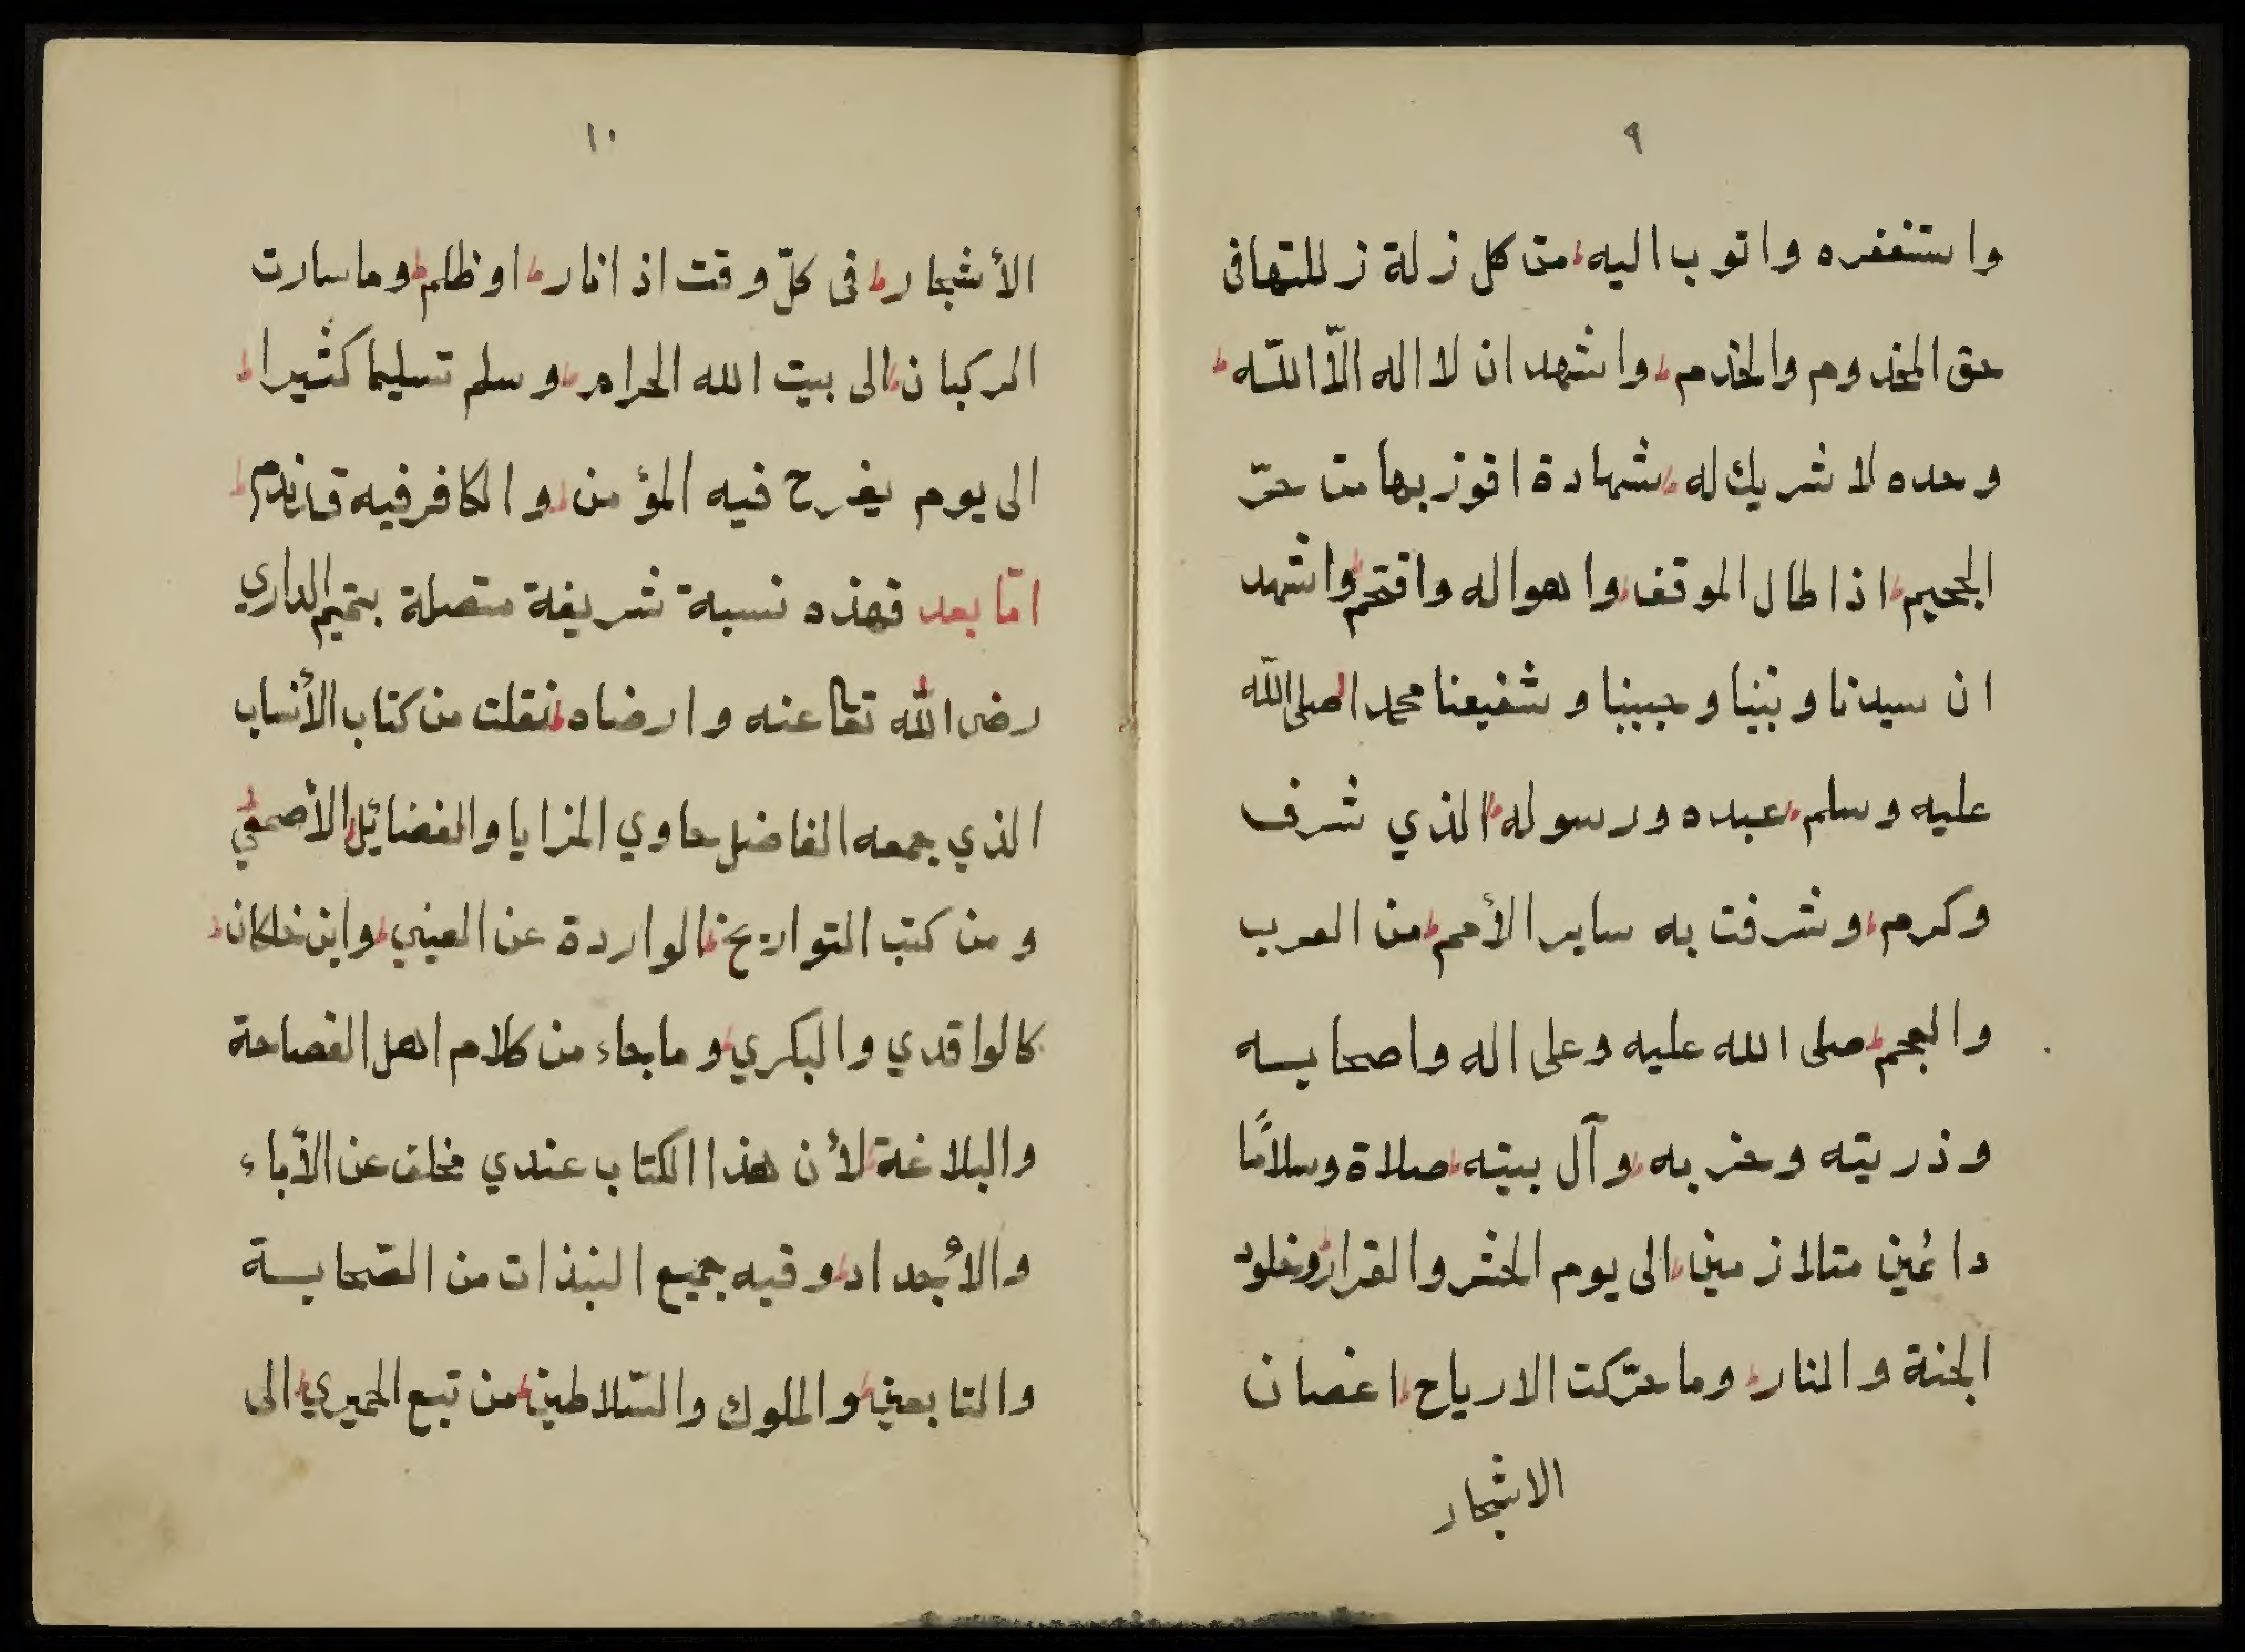 ٩
واستغفره واتوب اليه من كل زلة زللتها فى
حق المخدوم والخدم واشهد ان لا اله الّا اللّه
وحده لا شريك له شهادة افوز بها من حرّ
الجحيم اذا طال الموقف واهواله واقتحم واشهد
ان سيدنا ونبينا وحبيبنا وشفيعنا محمدا صلى اللّه
عليه وسلم عبده ورسوله الذي شرف
وكرم وشرفت به ساير الأمم من العرب
والعجم صلى الله عليه وعلى اله واصحابه
وذريته وحزبه وآل بيته صلاة وسلامًا
دائمين متلازمين الى يوم الحشر والقرار وخلود
الجنة والنار وما حرّكت الارياح اغصان
الاشجار
١٠
الأشجار فى كلّ وقت اذا نار او ظلم وما سارت
الركبان الى بيت الله الحرام وسلم تسليما كثيرا
الى يوم يفرح فيه المؤمن والكافر فيه قد ندم
امّا بعد فهذه نسبة شريفة متصلة بتميم الداري
رضى اللّه تعا عنه وارضاه نقلت من كتاب الأنساب
الذي جمعه الفاضل حاوي المزايا والفضائل الأصمعي
ومن كتب التواريخ الواردة عن العيني وابن خلكان
كالواقدي والبكري وما جاء من كلام اهل الفصاحة
والبلاغة لأن هذا الكتاب عندي مخلف عن الأباء
والأجداد وفيه جميع النبذات من الصّحابة
والتابعين والملوك والسّلاطين من تبع الحميري الى